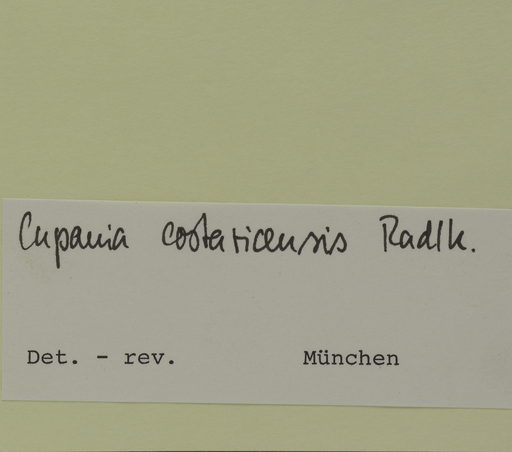 Cupania costaricensis Radlk.
Det. - rev. München